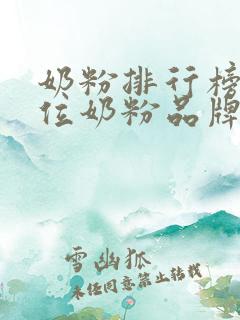 奶粉排行榜
位奶粉品牌
雪幽狐
未经同意禁止转载